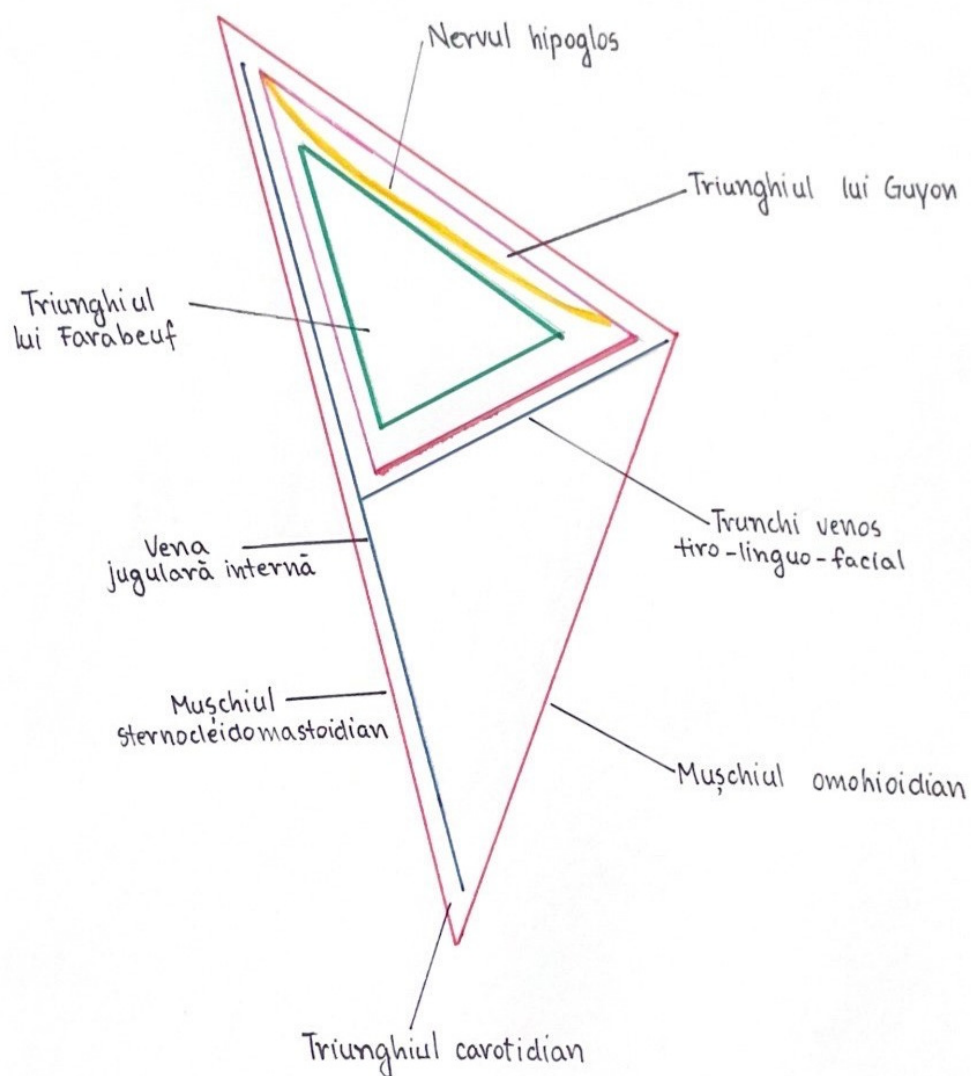 Nervul hipoglos
Triunghiul lui Guyon
Triunghiul
lui Farabeuf
Trunchi venos
tiro-linguo-facial
Vena
jugulară internă
Mușchiul
sternocleidomastoidian
Mușchiul omohioidian
Triunghiul carotidian